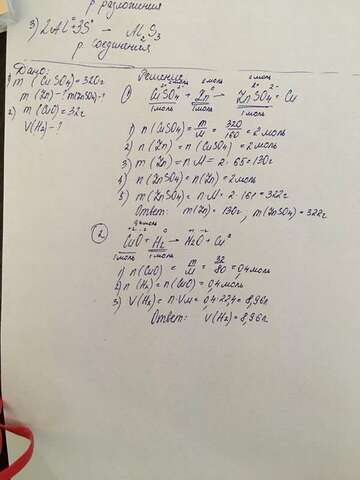 р разложения
3) 2Al⁰+3S⁰ → Al₂S₃
р соединения
Дано:
1) m (CuSO₄)=320г
m (Zn)-? m(ZnSO₄)-?
2) m (CuO)=32г
V(H₂)-?
Решение
2 моль 2 моль
① CuSO₄ + Zn⁰ → ZnSO₄ + Cu
1 моль 1 моль 1 моль
1) n(CuSO₄) = m/M = 320/160 = 2 моль
2) n(Zn) = n(CuSO₄) = 2 моль
3) m(Zn) = n·M = 2·65=130г
4) n(ZnSO₄)=n(Zn)=2 моль
5) m(ZnSO₄)=n·M= 2·161=322г
Ответ: m(Zn)=130г, m(ZnSO₄)=322г
0,4 моль
② CuO + H₂ → H₂O + Cu⁰
1 моль 1 моль
1) n(CuO) = m/M = 32/80 = 0,4 моль
2) n(H₂)=n(CuO)=0,4 моль
3) V(H₂)=n·Vм=0,4·22,4=8,96л
Ответ: V(H₂)=8,96л